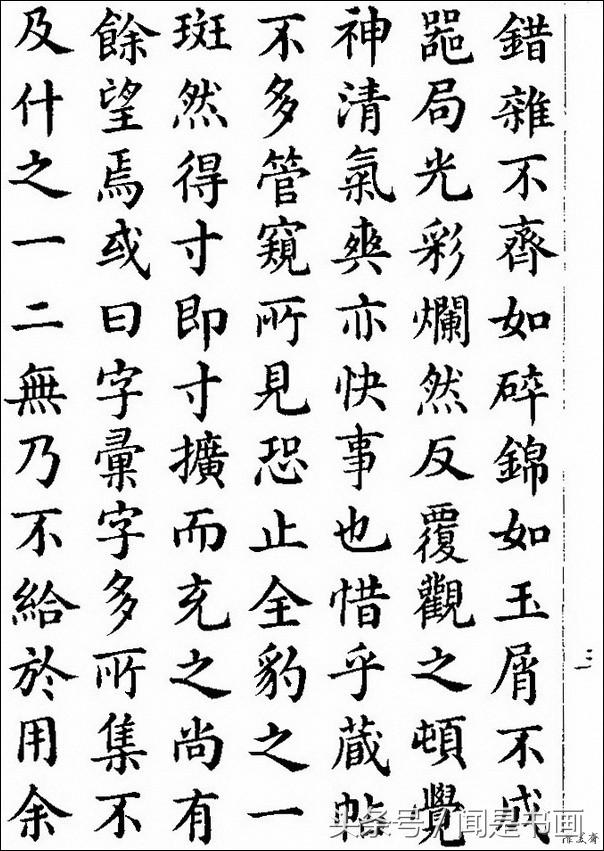 錯雜不齊如碎錦如玉屑不成
噐局光彩爛然反覆觀之頓覺
神清氣爽亦快事也惜乎蔵帖
不多管窺所見恐止全豹之一
斑然得寸即寸擴而充之尚有
餘望焉或曰字彙字多所集不
及什之一二無乃不給於用余
三
头条号/闻是书画